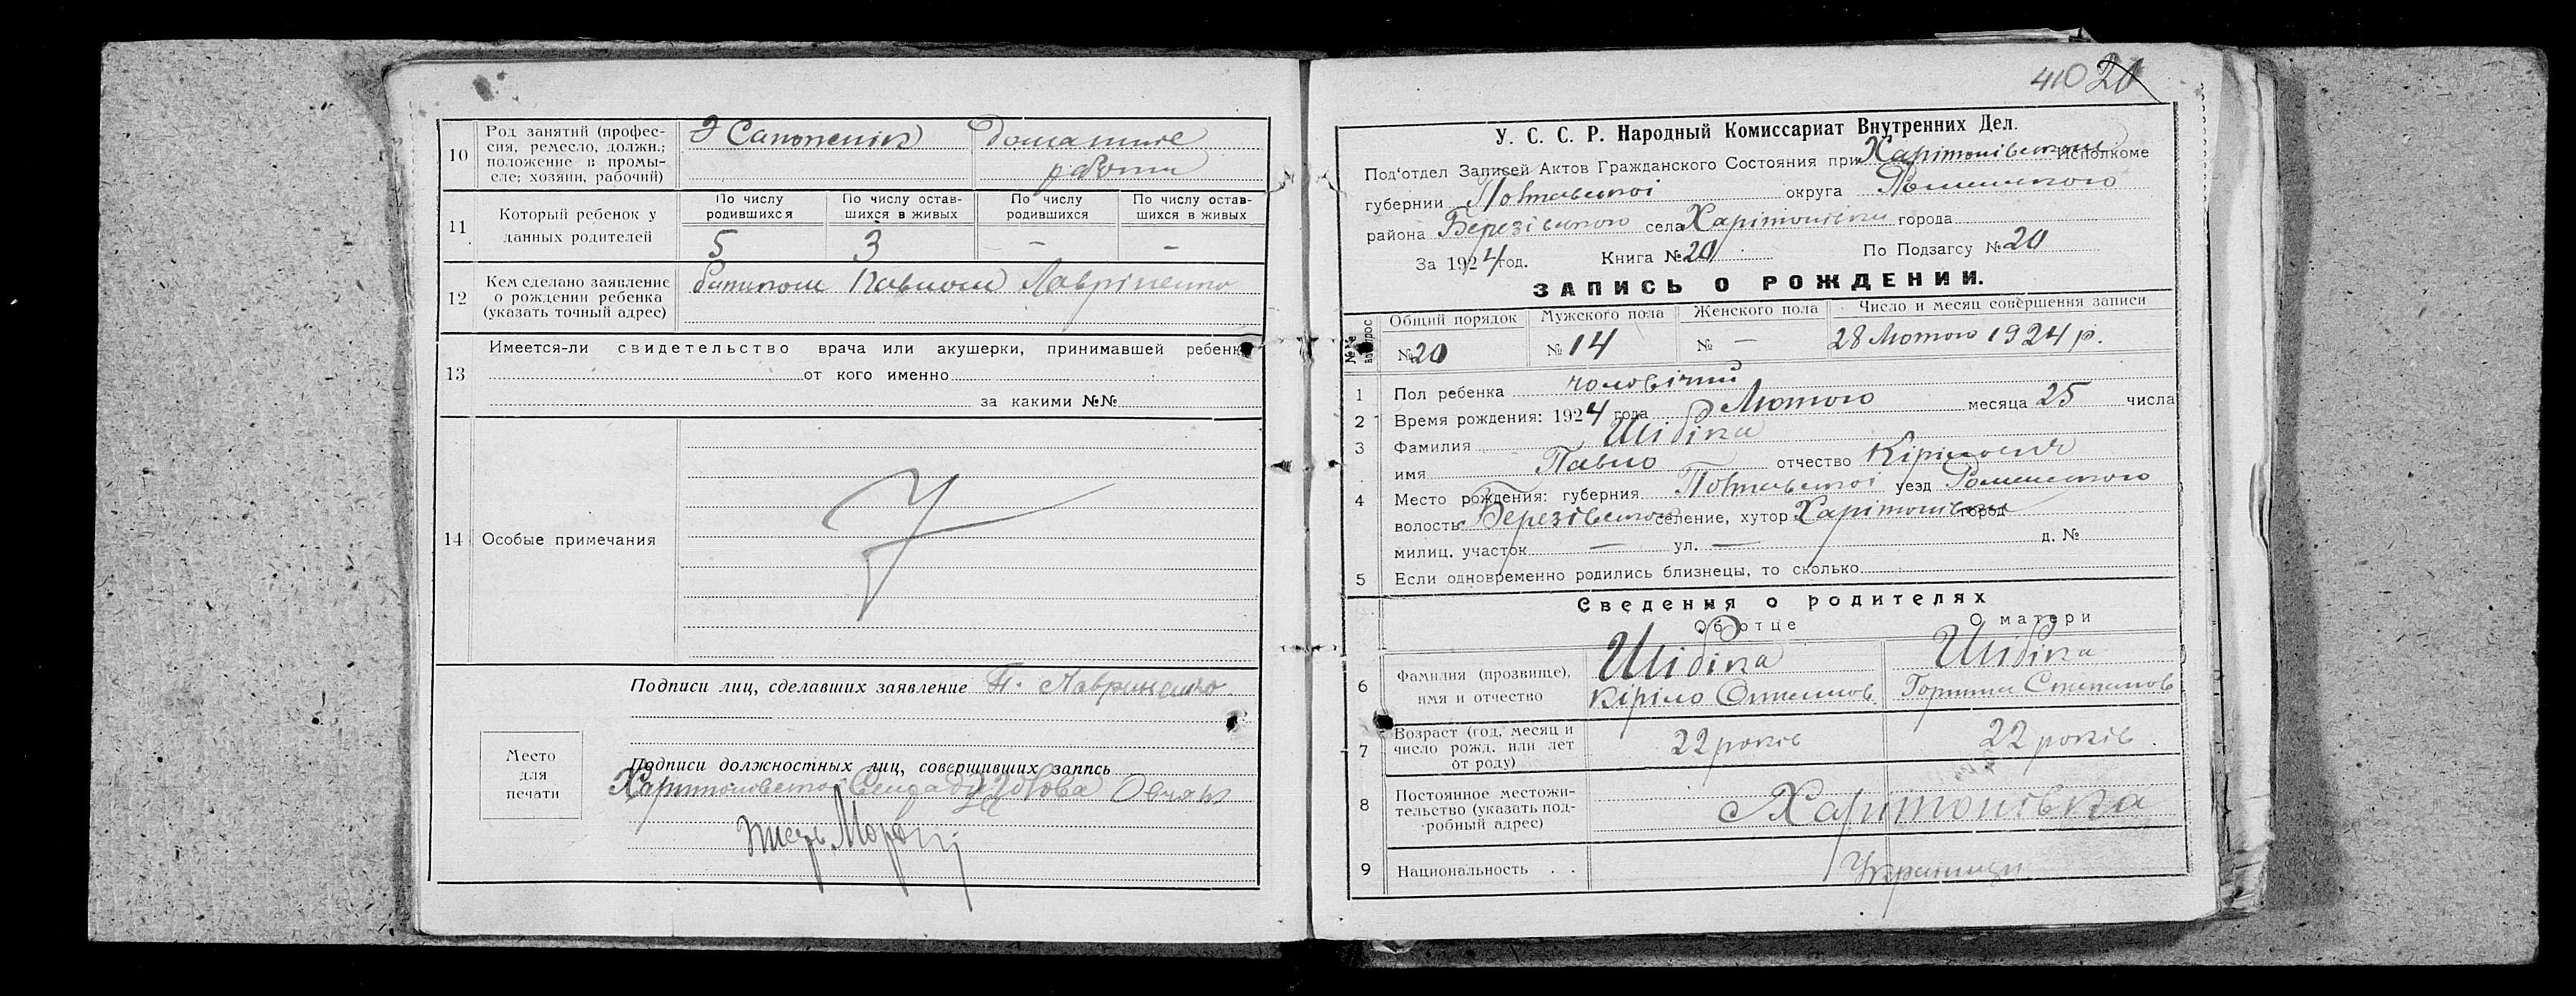 10 Род занятий (профес-
сия, ремесло, должн.;
положение в промы-
сле; хозяин, рабочий)
домашне
11 Который ребенок у
данных родителей
По числу
родившихся
По числу остав-
шихся в живых
По числу
родившихся
По числу остав-
шихся в живых
5 3 – –
12 Кем сделано заявление
о рождении ребенка
(указать точный адрес)
батьком Павлом Лавріненко
13 Имеется-ли свидетельство врача или акушерки, принимавшей ребенка
от кого именно
за какими №№
14 Особые примечания
Подписи лиц, сделавших заявление П. Лавриненко
Место
для
печати
Подписи должностных лиц, совершивших запись
410 20
У. С. С. Р. Народный Комиссариат Внутренних Дел.
Под'отдел Записей Актов Гражданского Состояния при Харітонівськом Исполкоме
губернии Полтавської округа Роменського
района Березівського села Харітонівки города
За 1924 год. Книга № 20 По Подзагсу № 20
ЗАПИСЬ О РОЖДЕНИИ.
№№ вопрос
Общий порядок Мужского пола Женского пола Число и месяц совершения записи
№ 20 № 14 № — 28 Лютого 1924 р.
1 Пол ребенка чоловічий
2 Время рождения: 1924 года Лютого месяца 25 числа
3 Фамилия Шибіка
имя Павло отчество Кірілович
4 Место рождения: губерния Полтавської уезд Роменського
волость Березівської селение, хутор Харітонівка город
милиц. участок — ул. — д. №
5 Если одновременно родились близнецы, то сколько
Сведения о родителях
Об отце О матери
6 Фамилия (прозвище),
имя и отчество
Шибіка Шибіка
Кіріло
7 Возраст (год, месяц и
число рожд. или лет
от роду)
22 років 22 років
8 Постоянное местожи-
тельство (указать под-
робный адрес)
с Харитонівка
9 Национальность . .
Українци